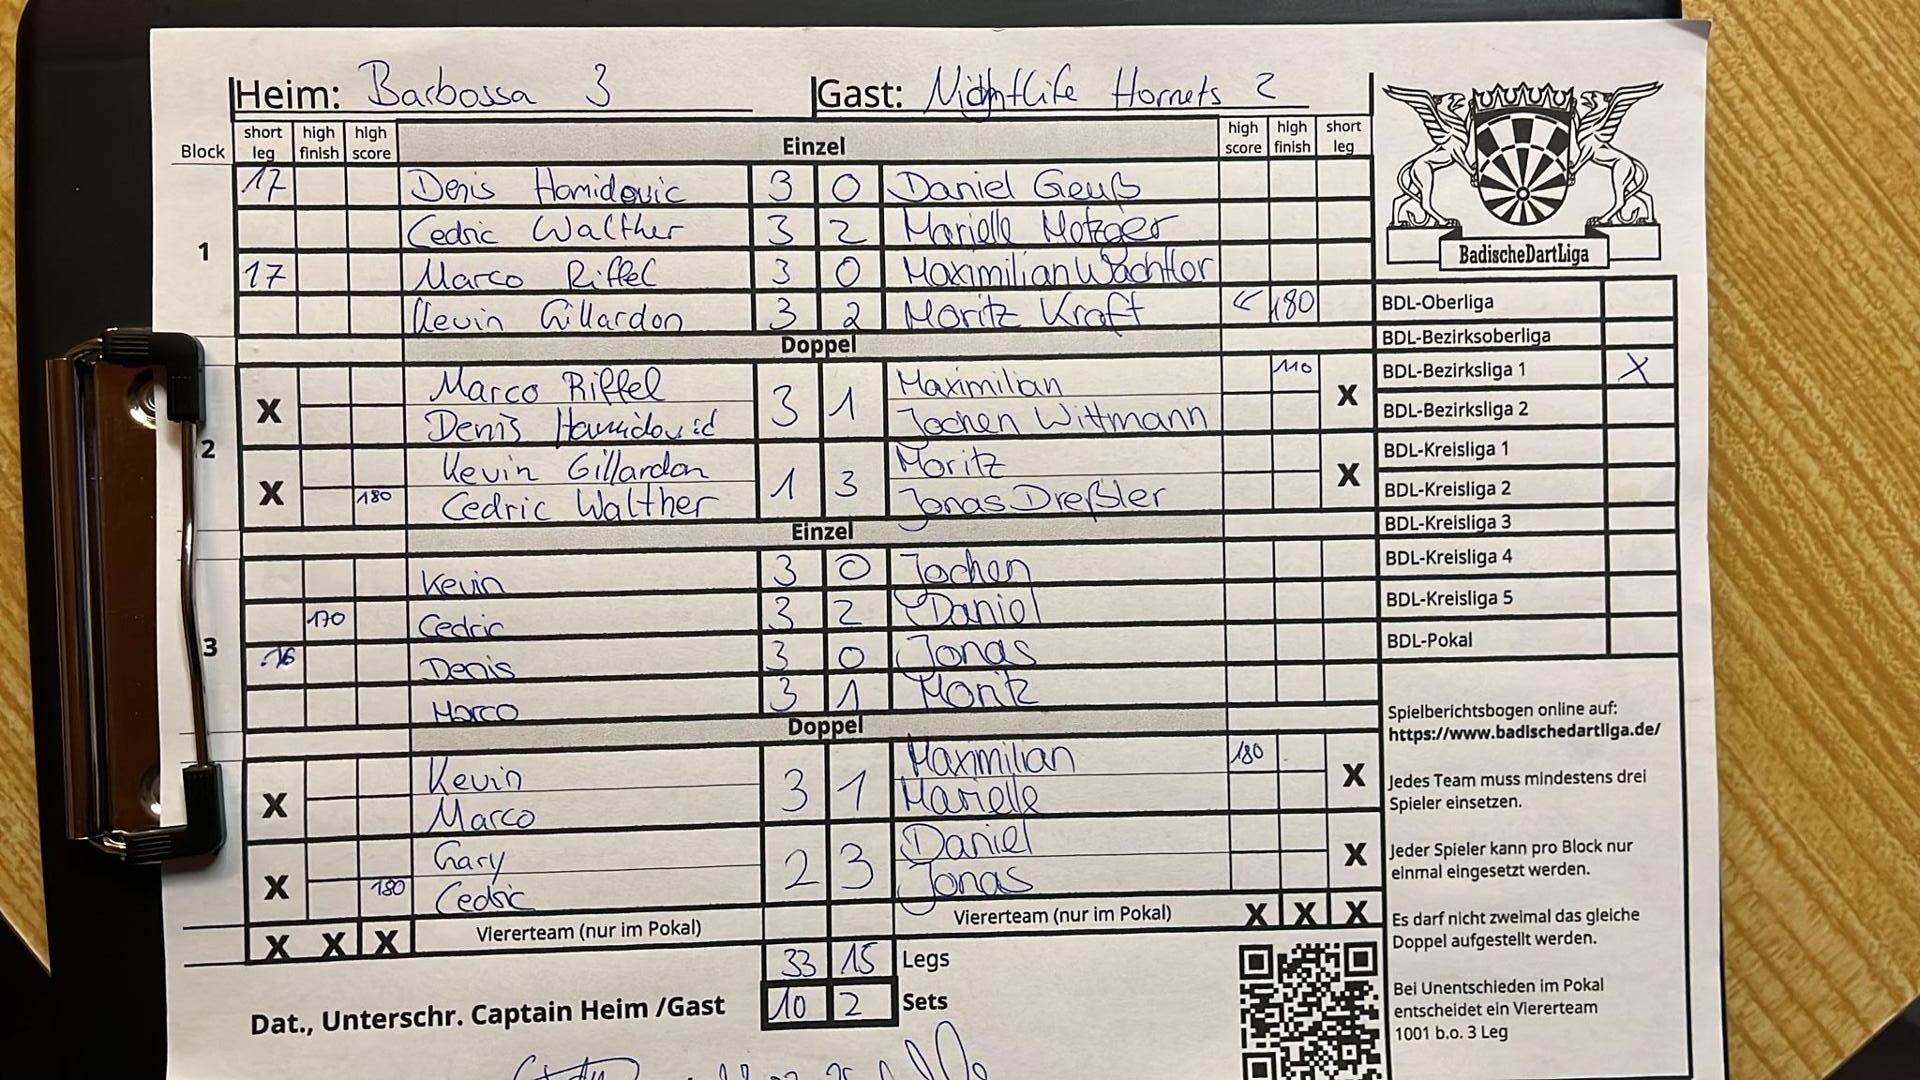 Heim: Barbossa 3 Gast: Nightlife Hornets 2
Block short leg high finish high score Einzel high score high finish short leg
1
17 Denis Hamidovic 3 0 Daniel Geuß
Cedric Walther 3 2 Marielle Motzger
17 Marco Riffel 3 0 Maximilian Wachtlor
Kevin Gillardon 3 2 Moritz Kraft 180
Doppel
2
X Marco Riffel 3 1 Maximilian 110 X
Denis Hamidovid Jochen Wittmann
X Kevin Gillardon 1 3 Moritz X
180 Cedric Walther Jonas Dreßler
Einzel
3
Kevin 3 0 Jochen
170 Cedric 3 2 Daniel
16 Denis 3 0 Jonas
Marco 3 1 Moritz
Doppel
X Kevin 3 1 Maximilian 180 X
Marco Marielle
X Gary 2 3 Daniel X
180 Cedric Jonas
X X X Viererteam (nur im Pokal) Viererteam (nur im Pokal) X X X
33 15 Legs
10 2 Sets
Dat., Unterschr. Captain Heim /Gast
BadischeDartLiga
BDL-Oberliga
BDL-Bezirksoberliga
BDL-Bezirksliga 1 X
BDL-Bezirksliga 2
BDL-Kreisliga 1
BDL-Kreisliga 2
BDL-Kreisliga 3
BDL-Kreisliga 4
BDL-Kreisliga 5
BDL-Pokal
Spielberichtsbogen online auf:
https://www.badischedartliga.de/
Jedes Team muss mindestens drei
Spieler einsetzen.
Jeder Spieler kann pro Block nur
einmal eingesetzt werden.
Es darf nicht zweimal das gleiche
Doppel aufgestellt werden.
Bei Unentschieden im Pokal
entscheidet ein Viererteam
1001 b.o. 3 Leg